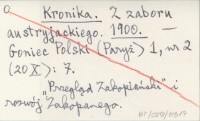 Kronika. Z zaboru
austryjackiego. 1900.
Goniec Polski (Paryż) 1, nr 2
(20 X): 7.
"Przegląd Zakopiański" i
rozwój Zakopanego.